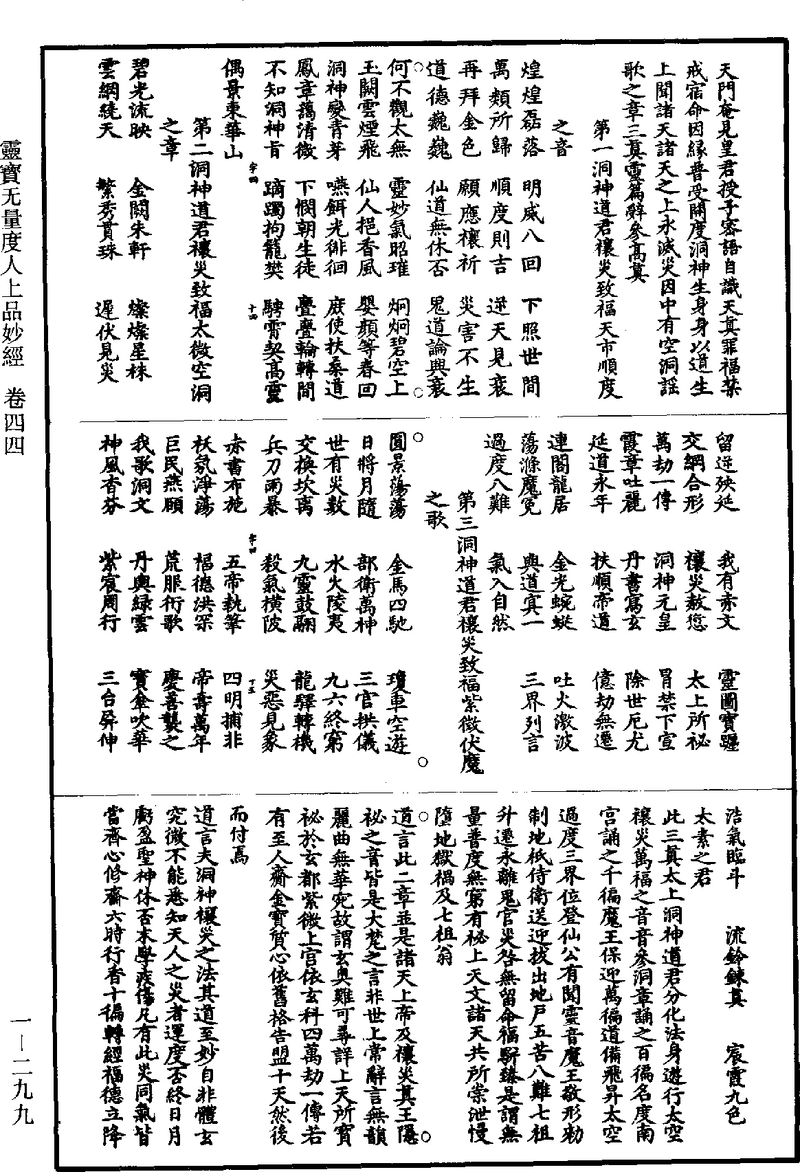 天門奄見皇君授子密語自識天真罪福禁
戒宿命因緣普受開度洞神生身身以道生
上聞諸天諸天之上永滅災因中有空洞謠
歌之章三真靈篇辭參高真
第一洞神道君禳災致福天市順度
之音
煌煌磊落 明威八回 下照世間
萬類所歸 順度則吉 逆天見衰
再拜金色 願應禳祈 災害不生
道德巍巍 仙道無休否 鬼道論興衰
何不觀太無 靈妙氣昭璀 炯炯碧空上
玉闕雲煙飛 仙人挹香風 嬰顏等春回
洞神變青芽 嚥餌光徘徊 庶使扶桑道
鳳章藹清微 下憫朝生徒 亹亹輪轉間
不知洞神旨 蹢躅拘籠樊 騁霄契高靈
偶景東華山
第二洞神道君禳災致福太微空洞
之章
碧光流映 金闕朱軒 燦燦星株
雲網繞天 繁秀貫珠 遲伏見災
留逆殃延 我有赤文 靈圖寶躔
交網合形 禳災赦愆 太上所祕
萬劫一傳 洞神元皇 冒禁下宣
霞章吐麗 丹書寫玄 除世厄尤
延道永年 扶順帝道 億劫無遷
連閣龍居 金光蜿蜒 吐火激波
蕩滌魔冤 與道寘一 三界列言
過度八難 氣入自然
第三洞神道君禳災致福紫微伏魔
之歌
圓景蕩蕩 金馬四馳 瓊車空遊
日將月隨 部衛萬神 三官拱儀
世有災數 水火陵夷 九六終窮
交換坎离 九靈鼓翮 龍驛轉機
兵刀雨暴 殺氣橫陂 災惡見象
赤書布施 五帝執筆 四明捕非
袄氛淨蕩 福德洪深 帝壽萬年
巨民燕願 荒服衎歌 慶善襲之
我歌洞文 丹輿綠雲 寶傘吹華
神風香芬 紫宸周行 三台屏伸
浩氣臨斗 流鈴鍊真 宸霞九色
太素之君
此三真太上洞神道君分化法身遊行太空
禳災萬福之音音參洞章誦之百徧名度南
宮誦之千徧魔王保迎萬徧道備飛昇太空
過度三界位登仙公有聞靈音魔王敬形勑
制地祇侍衛送迎拔出地戶五苦八難七祖
升遷永離鬼官災咎無留命福駢臻是謂無
量普度無窮有祕上天文諸天共所崇泄慢
墮地獄禍及七祖翁
道言此二章並是諸天上帝及禳災真王隱
祕之音皆是大梵之言非世上常辭言無韻
麗曲無華宛故謂玄奧難可尋詳上天所寶
祕於玄都紫微上宮依玄科四萬劫一傳若
有至人齎金寶質心依舊格告盟十天然後
而付焉
道言夫洞神禳災之法其道至妙自非體玄
究微不能悉知天人之災者運度否終日月
虧盈聖神休否本學疾傷凡有此災同氣皆
當齊心修齋六時行香十徧轉經福德立降
靈寶无量度人上品妙經 卷四四
一—二九九